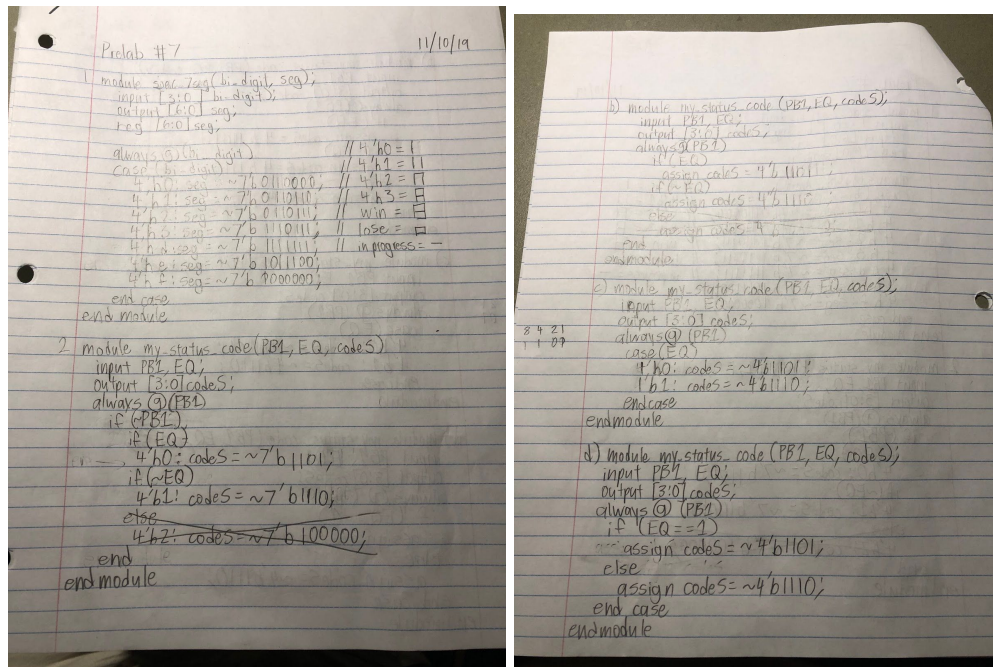 Prelab #7
11/10/19
1. module spec_7seg(bi_digit, seg);
input [3:0] bi_digit;
output [6:0] seg;
reg [6:0] seg;
always @ (bi_digit)
case (bi_digit)
// 4'h0 =
// 4'h1 =
4'h0: seg = ~7'b0110000; // 4'h2 =
4'h1: seg = ~7'b0110110; // 4'h3 =
4'h2: seg = ~7'b0110111; // win =
4'h3: seg = ~7'b1110111; // lose =
4'hd: seg = ~7'b1111111; // in progress = —
4'he: seg = ~7'b1011100;
4'hf: seg = ~7'b1000000;
end case
end module
2. module my_status_code(PB1, EQ, codeS)
input PB1, EQ;
output [3:0] codeS;
always @ (PB1)
if (~PB1)
if (EQ)
4'h0: codeS = ~7'b1101;
if (~EQ)
4'b1: codeS = ~7'b1110;
else
4'b2: codeS = ~7'b100000;
end
endmodule
b) module my_status_code (PB1, EQ, codeS);
input PB1, EQ;
output [3:0] codeS;
always @ (PB1)
if (EQ)
assign codeS = 4'b1101;
if (~EQ)
assign codeS = 4'b1110;
else
assign codeS = 4'
end
endmodule
c) module my_status_code (PB1, EQ, codeS);
input PB1, EQ;
output [3:0] codeS;
8 4 2 1
always @ (PB1)
1 1 0
case(EQ)
1'h0: codeS = ~4'b1101;
1'b1: codeS = ~4'b1110;
endcase
endmodule
d) module my_status_code (PB1, EQ, codeS);
input PB1, EQ;
output [3:0] codeS;
always @ (PB1)
if (EQ==1)
assign codeS = ~4'b1101;
else
assign codeS = ~4'b1110;
end case
endmodule